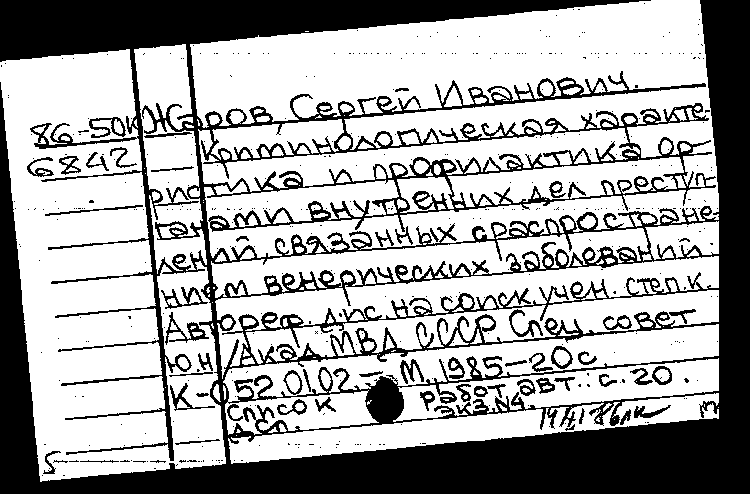 86-50К Жаров, Сергей Иванович.
6842 Криминологическая характе-
ристика и профилактика ор-
ганами внутренних дел преступ-
лений, связанных с распростране-
нием венерических заболеваний.
Автореф. дис. на соиск. учен. степ. к.
ю. н. /Акад. МВД СССР. Спец. совет
К-052.01.02.- М. 1985.-20с
список работ авт.: с. 20.
дсп. экз. N4.
5